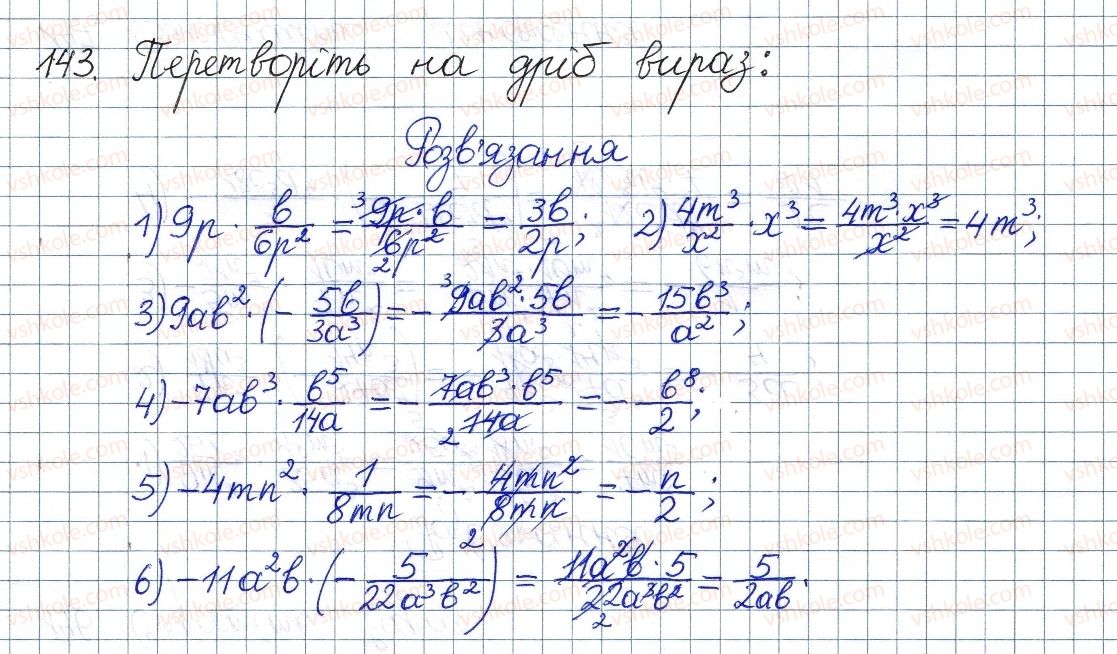 143. Перетворіть на дріб вираз:
Розв'язання
1) 9p · b/6p² = 9p·b/6p² = 3b/2p; 2) 4m³/x² · x³ = 4m³·x³/x² = 4m³;
3) 9ab² · (- 5b/3a³) = - 9ab²·5b/3a³ = - 15b³/a²;
4) -7ab³ · b⁵/14a = - 7ab³·b⁵/14a = - b⁸/2;
5) -4mn² · 1/8mn = - 4mn²/8mn = - n/2;
6) -11a²b · (- 5/22a³b²) = 11a²b·5/22a³b² = 5/2ab.